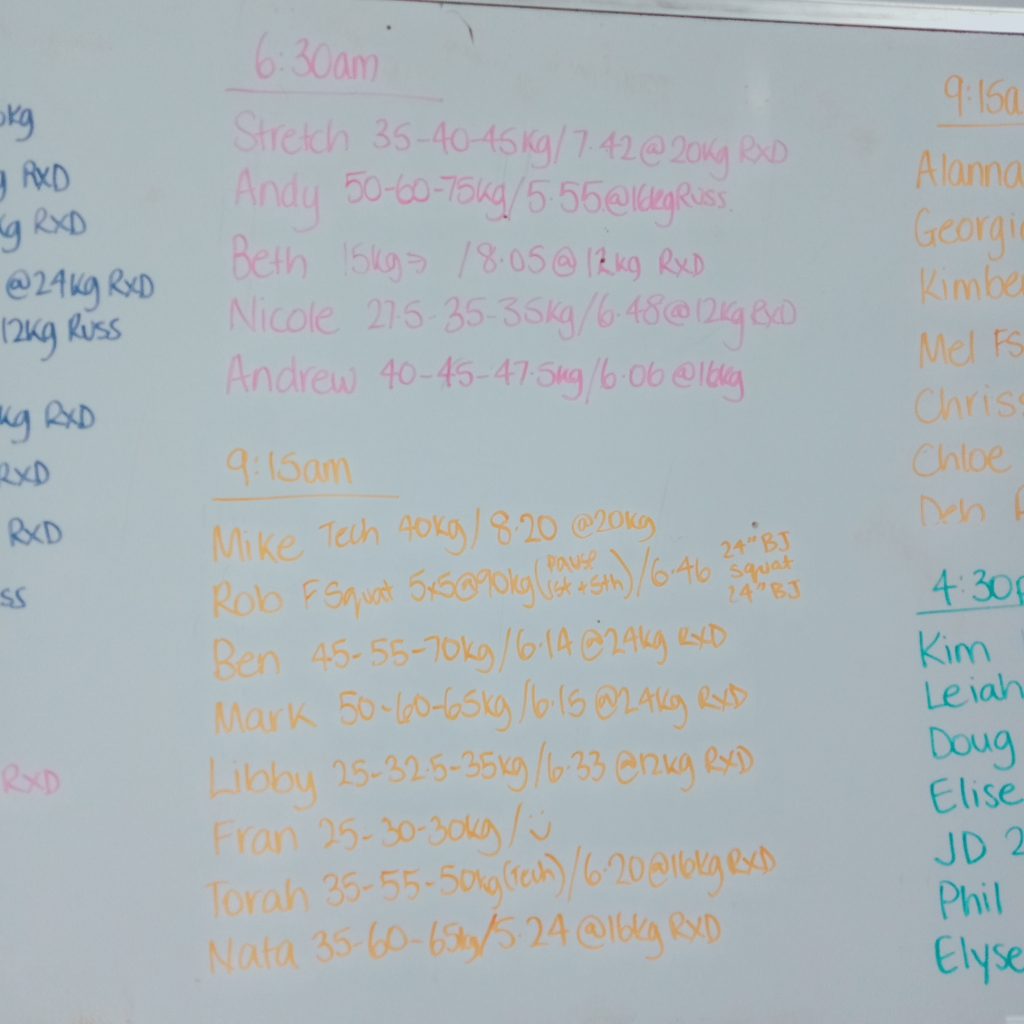 kg
RXD
kg RXD
@24kg RXD
12kg Russ
kg RXD
RXD
RXD
ss
RXD
6:30am
Stretch 35-40-45kg/7.42@20kg RXD
Andy 50-60-75kg/5.55@16kg Russ
Beth 15kg⇒ /8.05@12kg RXD
Nicole 27.5-35-35kg/6.48@12kg RXD
Andrew 40-45-47.5kg/6.06@16kg
9:15am
Mike Tech 40kg/8.20 @20kg
Rob F Squat 5x5@90kg(pause 1st + 5th)/6.46 24" BJ squat 24" BJ
Ben 45-55-70kg/6.14@24kg RXD
Mark 50-60-65kg/6.15@24kg RXD
Libby 25-32.5-35kg/6.33 @12kg RXD
Fran 25-30-30kg/
Torah 35-55-50kg(Tech)/6.20@16kg RXD
Nata 35-60-65kg/5.24 @16kg RXD
9:15a
Alanna
Georgi
Kimber
Mel FS
Chriss
Chloe
Deh
4:30p
Kim
Leiah
Doug
Elise
JD 2
Phil
Elyse